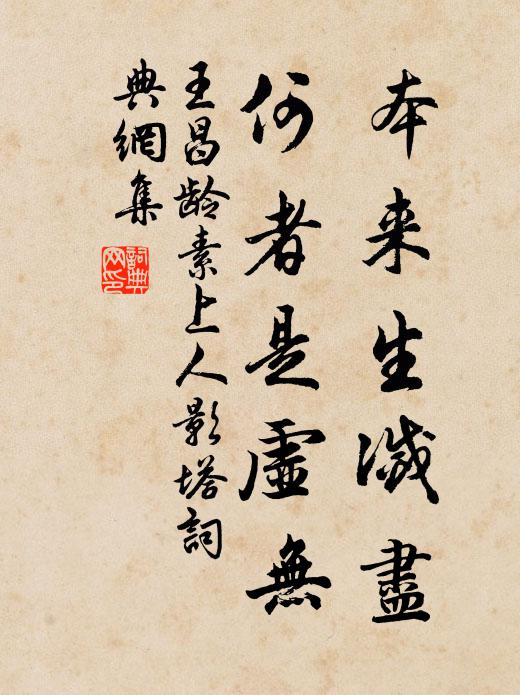 本来生滅盡
何者是虛無
王昌龄素上人影塔詞
典網集
詞典
网印